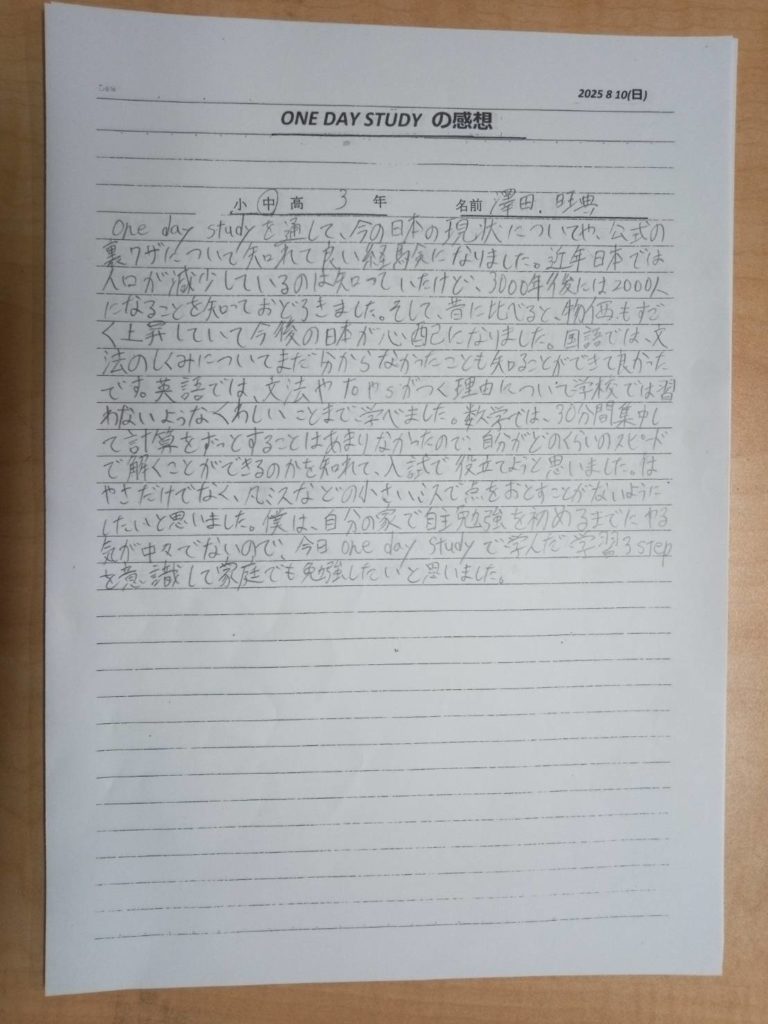 2025 8 10(日)
ONE DAY STUDY の感想
小 中 高 3 年 名前 澤田 旺典
One day studyを通して、今の日本の現状についてや、公式の
裏ワザについて知れて良い経験になりました。近年日本では
人口が減少しているのは知っていたけど、3000年後には2000人
になることを知っておどろきました。そして、昔に比べると、物価もすご
く上昇していて今後の日本が心配になりました。国語では、文
法のしくみについてまだ分からなかったことも知ることができて良かった
です。英語では、文法や toやsがつく理由について学校では習
わないようなくわしいことまで学べました。数学では、30分間集中し
て計算をずっとすることはあまりなかったので、自分がどのくらいのスピード
で解くことができるのかを知れて、入試で役立てようと思いました。は
やさだけでなく、凡ミスなどの小さいミスで点をおとすことがないように
したいと思いました。僕は、自分の家で自主勉強を初めるまでにやる
気が中々でないので、今日one day studyで学んだ学習3step
を意識して家庭でも勉強したいと思いました。